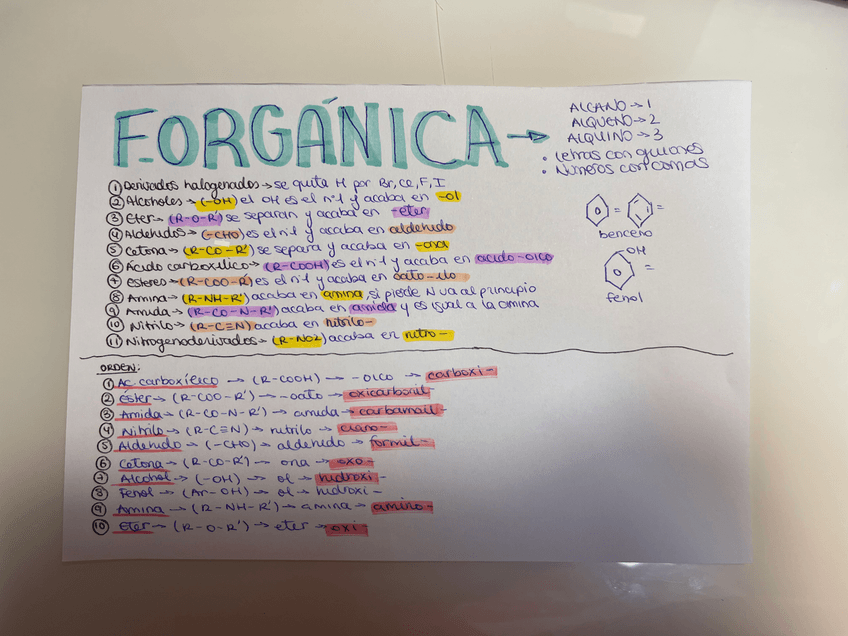 F.ORGÁNICA →
ALCANO → 1
ALQUENO → 2
ALQUINO → 3
· Letras con guiones
· Números con comas
① Derivados halogenados → se quita H por Br, Cl, F, I
② Alcoholes → (-OH) el OH es el nº1 y acaba en -ol
③ Eter → (R-O-R') se separan y acaba en -eter
④ Aldehidos → (-CHO) es el nº1 y acaba en aldehido
⑤ Cetona → (R-CO-R') se separa y acaba en -ona
⑥ Ácido carboxílico → (R-COOH) es el nº1 y acaba en acido-oico
⑦ Esteres → (R-COO-R') es el nº1 y acaba en oato-ilo
⑧ Amina → (R-NH-R') acaba en amina, si pierde N va al principio
⑨ Amida → (R-CO-N-R') acaba en amida y es igual a la amina
⑩ Nitrilo → (R-C≡N) acaba en nitrilo-
⑪ Nitrogenoderivados → (R-NO2) acaba en nitro-
= =
benceno
OH
=
fenol
ORDEN:
① Ac. carboxílico → (R-COOH) → -oico → carboxi-
② éster → (R-COO-R') → -oato → oxicarbonil
③ Amida → (R-CO-N-R') → amida → carbamoil-
④ Nitrilo → (R-C≡N) → nitrilo → ciano-
⑤ Aldehido → (-CHO) → aldehido → formil-
⑥ Cetona → (R-CO-R') → ona → oxo-
⑦ Alcohol → (-OH) → ol → hidroxi-
⑧ Fenol → (Ar-OH) → ol → hidroxi-
⑨ Amina → (R-NH-R') → amina → amino-
⑩ Eter → (R-O-R') → eter → oxi-